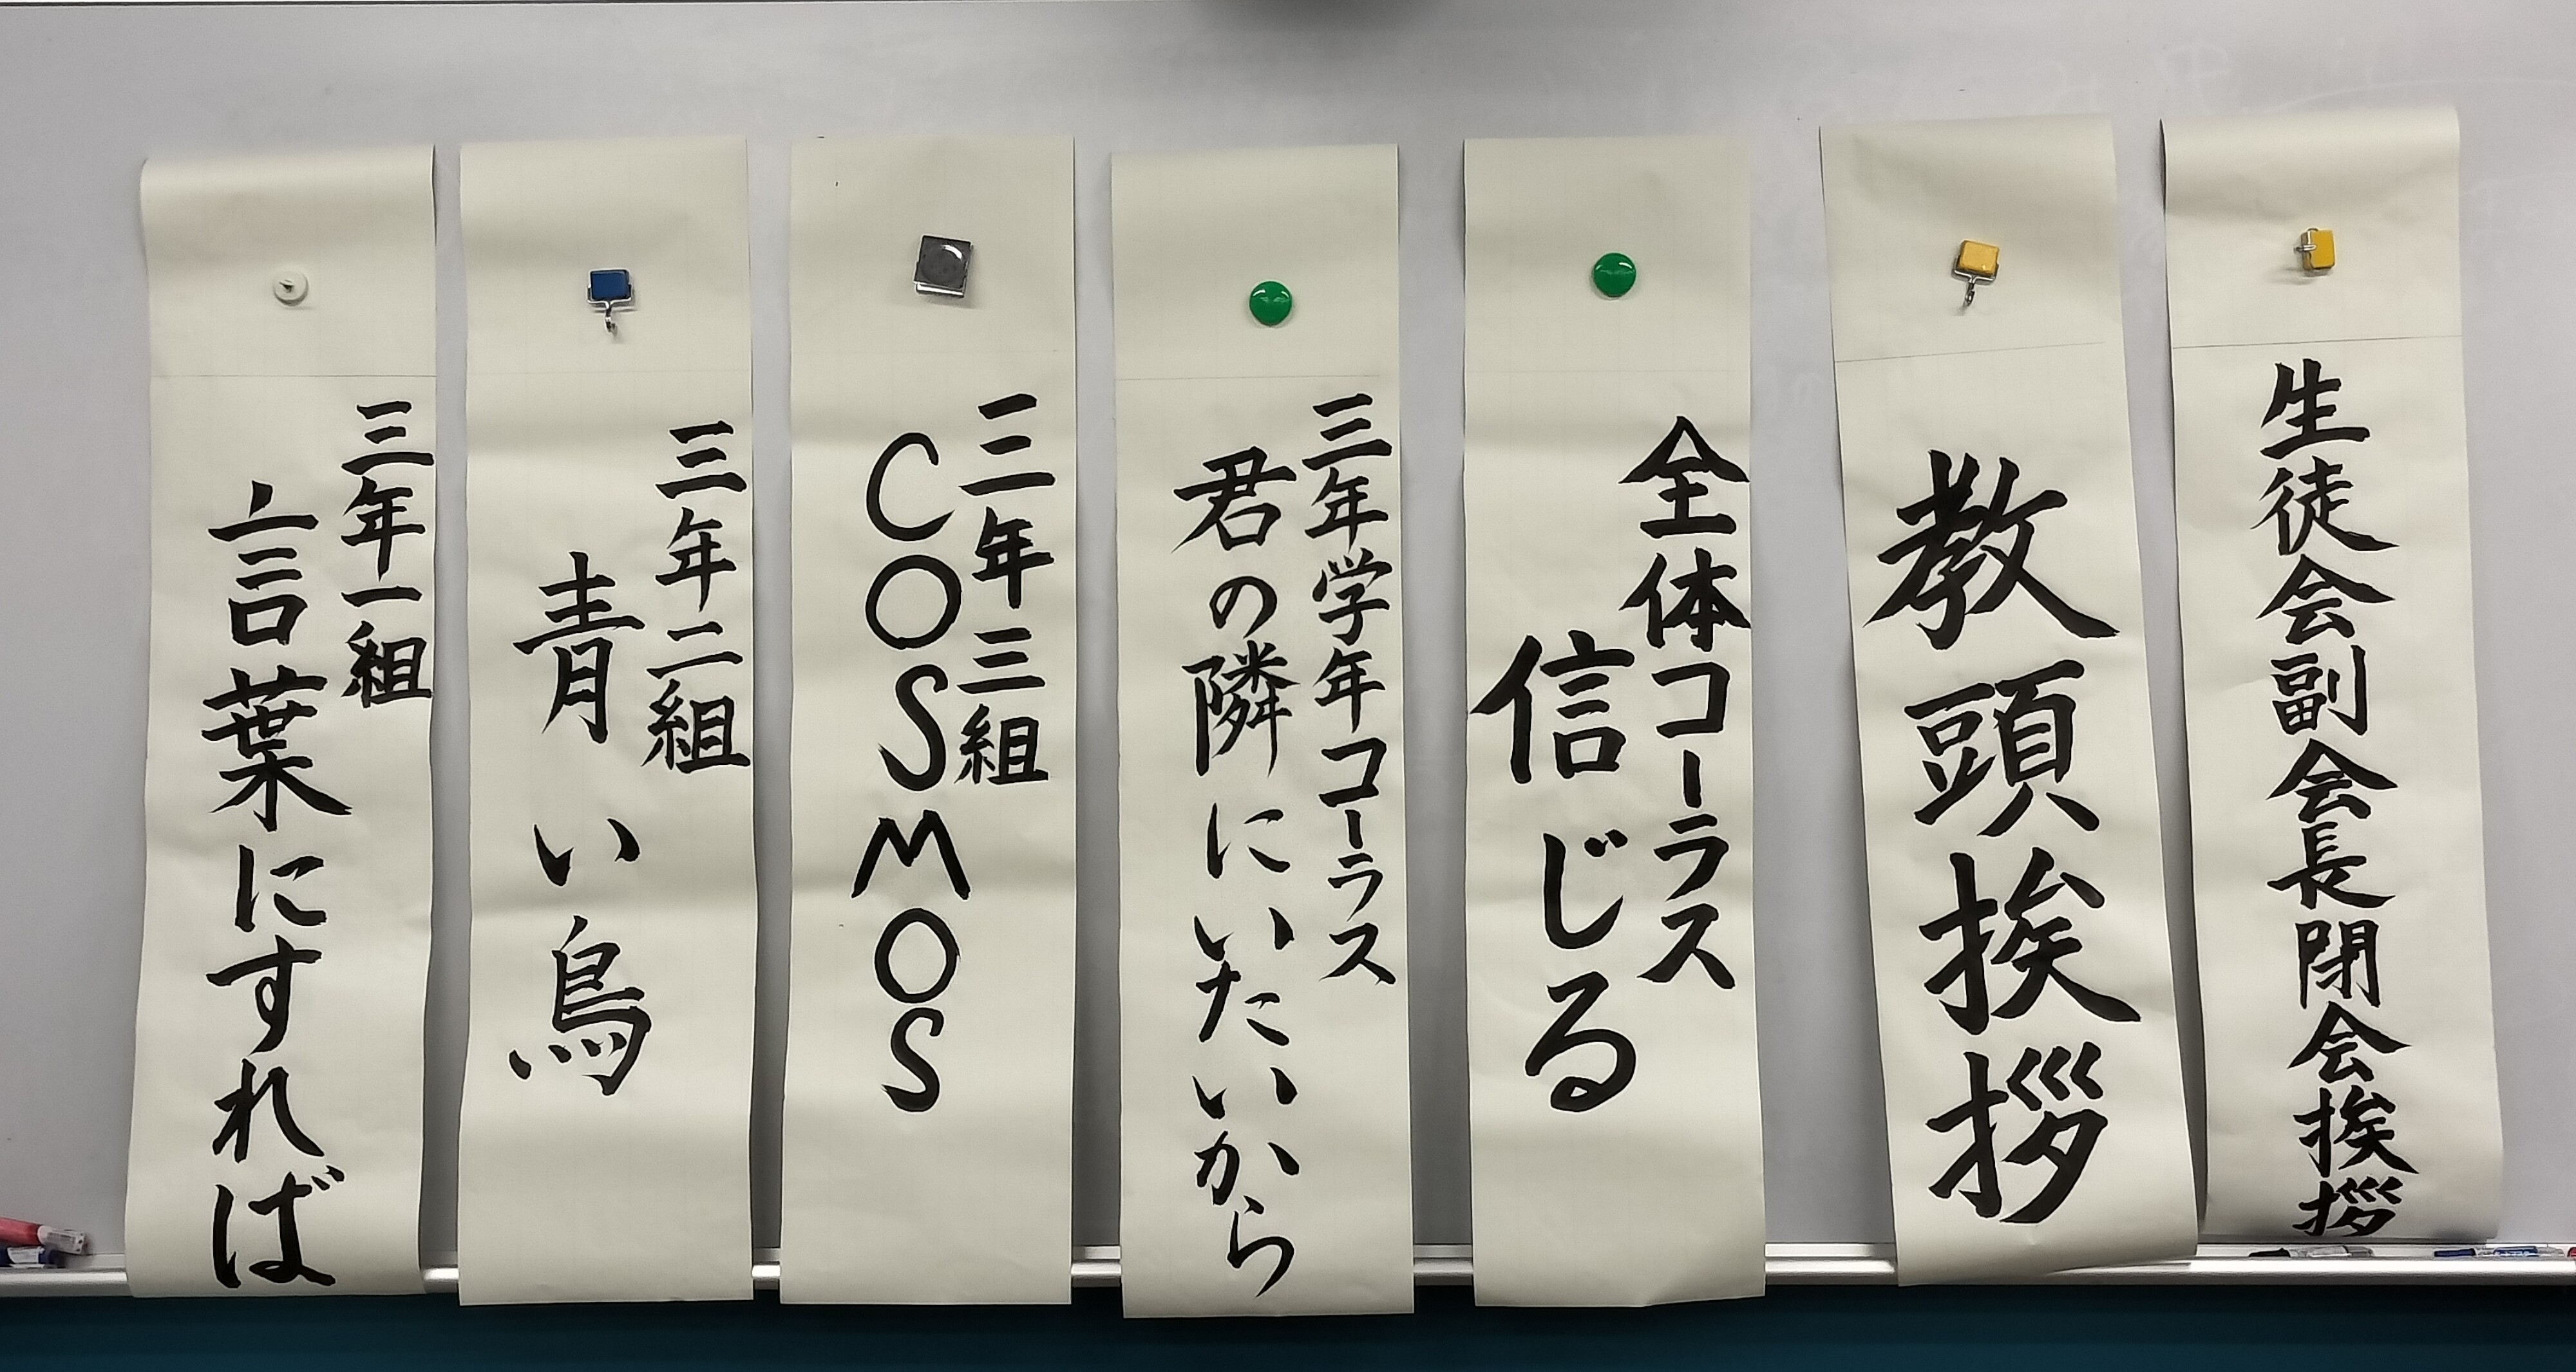 三年一組
言葉にすれば
三年二組
青い鳥
三年三組
COSMOS
三年学年コーラス
君の隣にいたいから
全体コーラス
信じる
教頭挨拶
生徒会副会長閉会挨拶